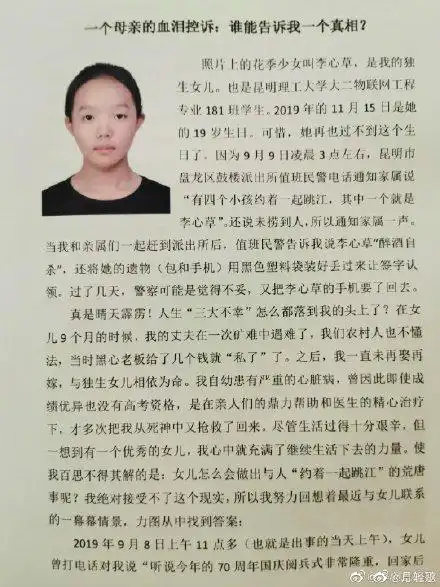 一个母亲的血泪控诉：谁能告诉我一个真相？
照片上的花季少女叫李心草，是我的独
生女儿。也是昆明理工大学大二物联网工程
专业 181 班学生。2019 年的 11 月 15 日是她
的 19 岁生日。可惜，她再也过不到这个生
日了。因为 9 月 9 日凌晨 3 点左右，昆明市
盘龙区鼓楼派出所值班民警电话通知家属说
“有四个小孩约着一起跳江，其中一个就是
李心草”。还说未捞到人，所以通知家属一声。
当我和亲属们一起赶到派出所后，值班民警告诉我说李心草“醉酒自
杀”，还将她的遗物（包和手机）用黑色塑料袋装好丢过来让签字认
领。过了几天，警察可能是觉得不妥，又把李心草的手机要了回去。
真是晴天霹雳！人生“三大不幸”怎么都落到我的头上了？在女
儿 9 个月的时候，我的丈夫在一次矿难中遇难了，我们农村人也不懂
法，当时黑心老板给了几个钱就“私了”了。之后，我一直未再娶再
嫁，与独生女儿相依为命。我自幼患有严重的心脏病，曾因此即使成
绩优异也没有高考资格，是在亲人们的鼎力帮助和医生的精心治疗
下，才多次把我从死神中又抢救了回来。尽管生活过得十分艰辛，但
一想到有一个优秀的女儿，我心中就充满了继续生活下去的力量。使
我百思不得其解的是：女儿怎么会做出与人“约着一起跳江”的荒唐
事呢？我绝对接受不了这个现实，所以我努力回想着最近与女儿联系
的一幕幕情景，力图从中找到答案：
2019 年 9 月 8 日上午 11 点多（也就是出事的当天上午），女儿
曾打电话对我说“听说今年的 70 周年国庆阅兵式非常隆重，回家后